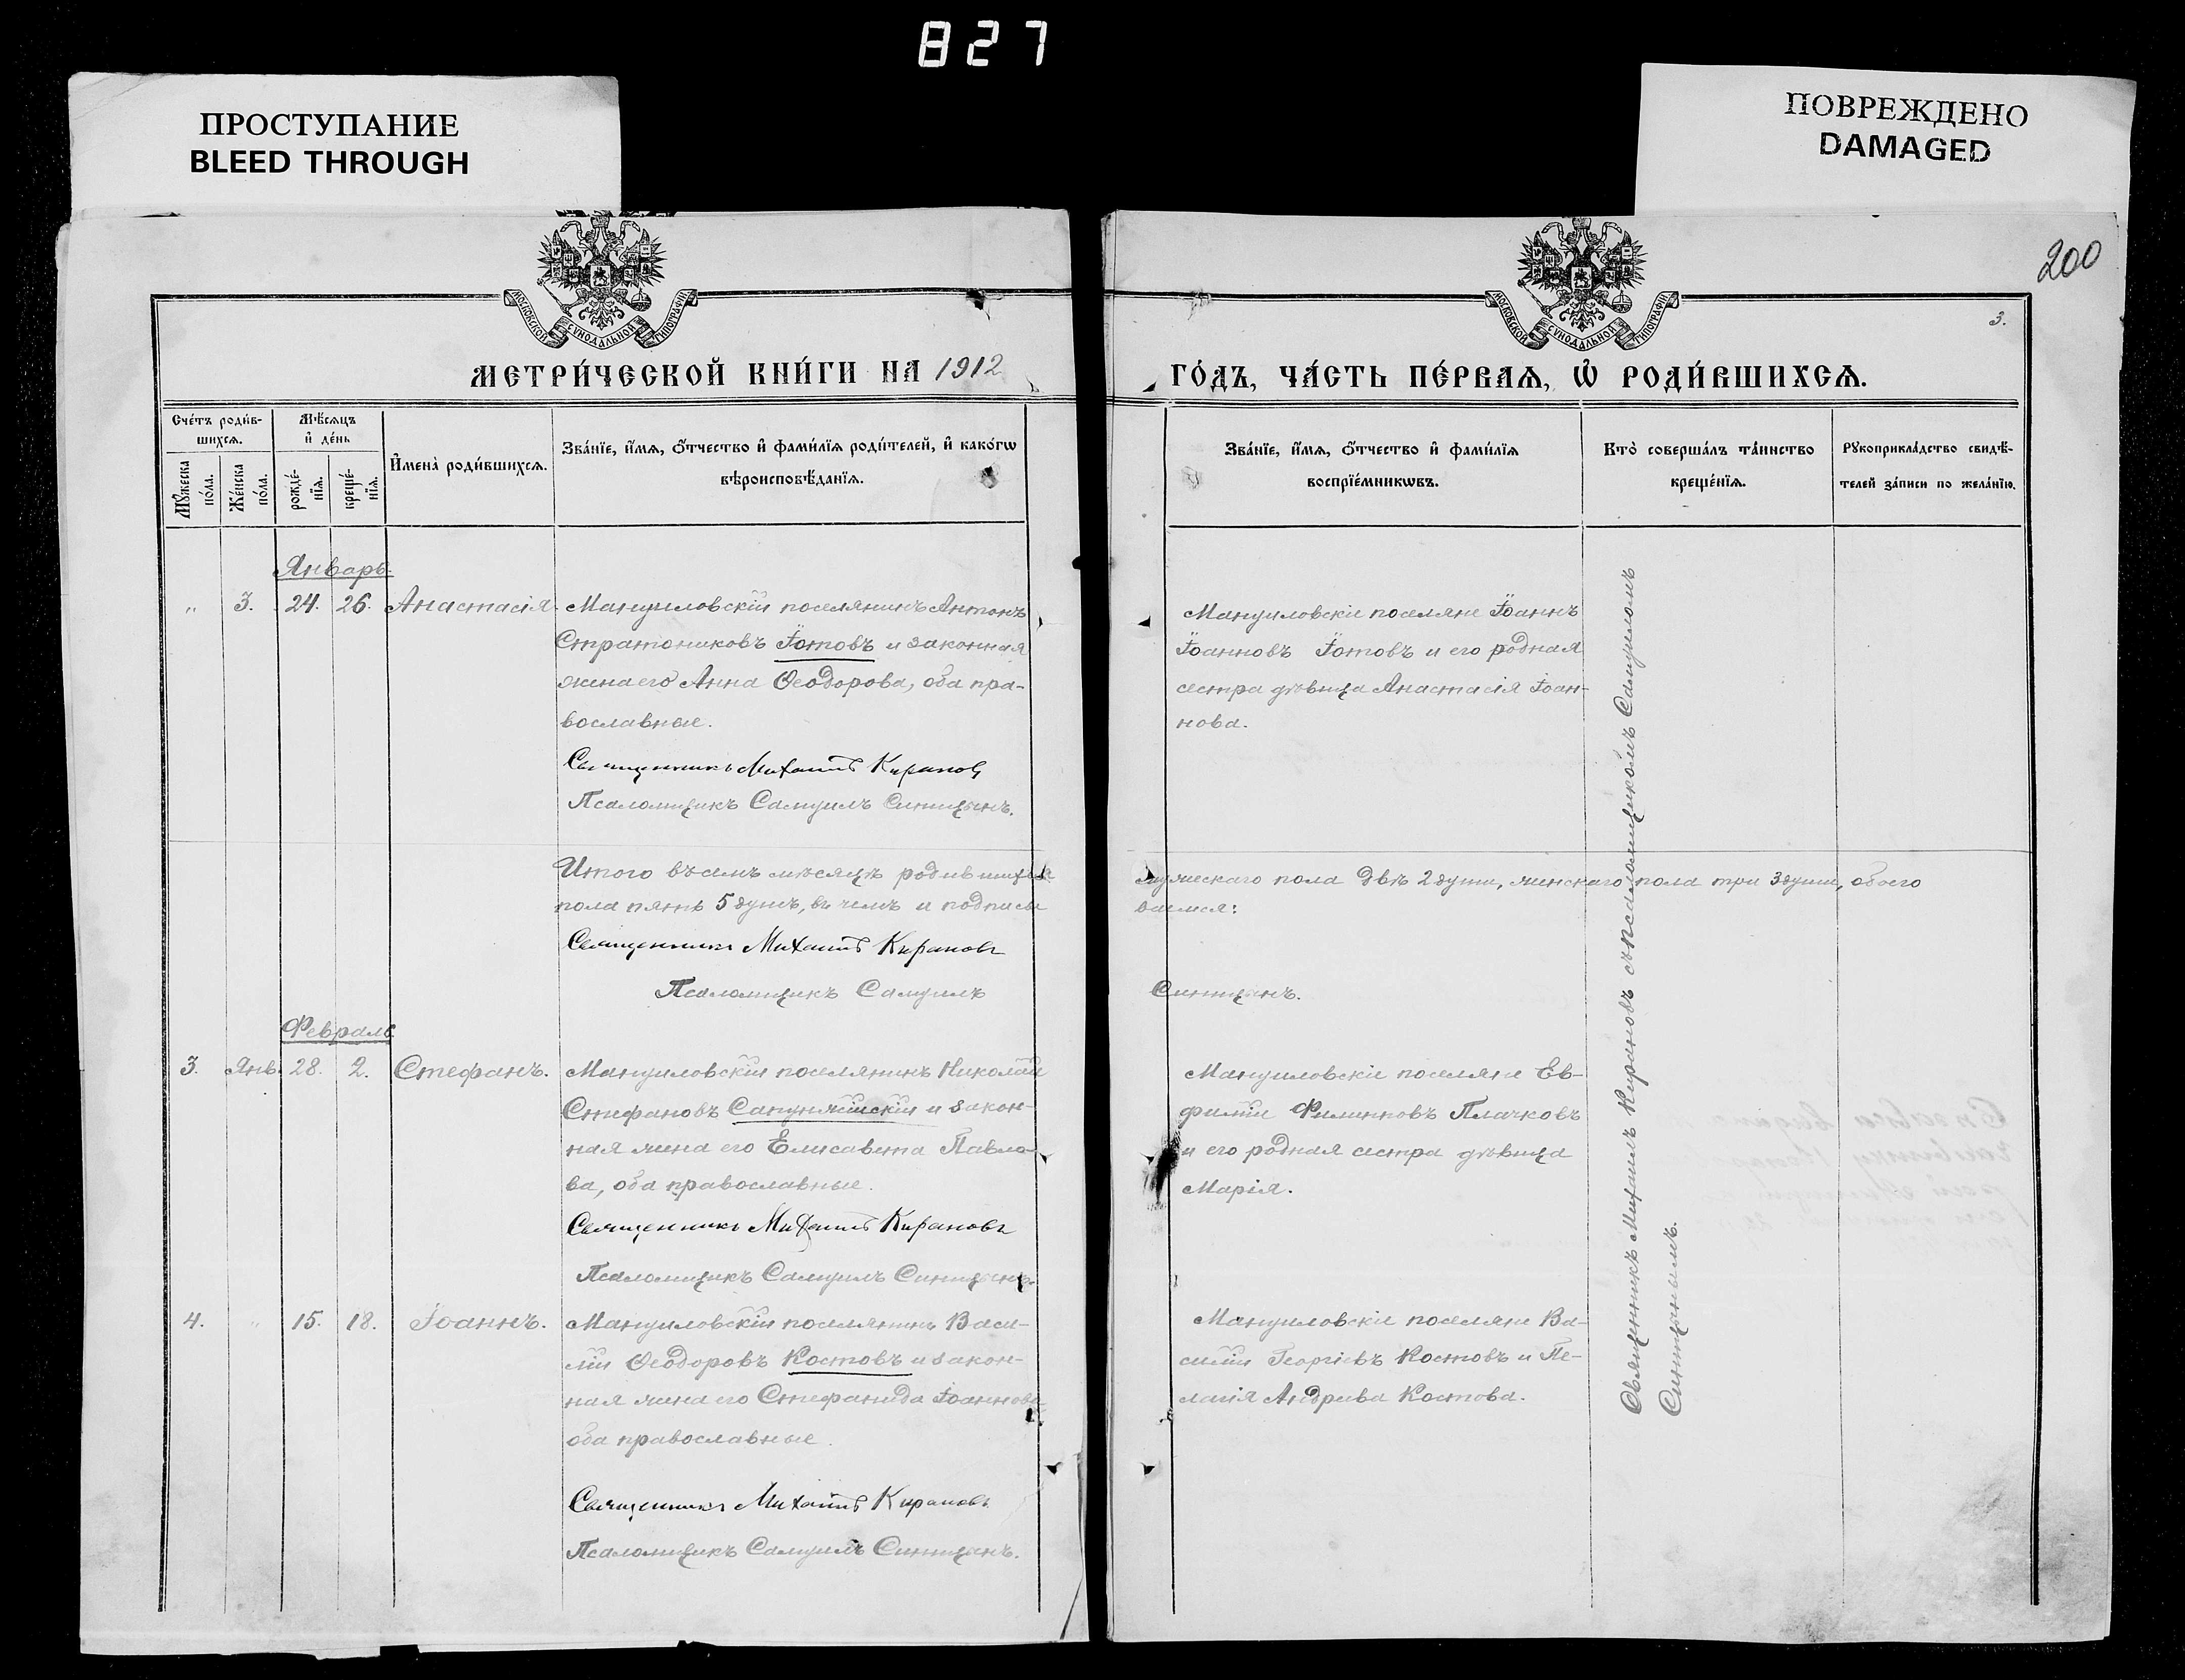 827
ПРОСТУПАНИЕ
BLEED THROUGH
ПОВРЕЖДЕНО
DAMAGED
200
3.
МОСКОВСКОЙ СѴНОДАЛЬНОЙ ТИПОГРАФІИ
МОСКОВСКОЙ СѴНОДАЛЬНОЙ ТИПОГРАФІИ
МЕТРИ́ЧЕСКОЙ КНИ́ГИ НА 1912
ГО́ДЪ, ЧА́СТЬ ПЕ́РВАѦ, Ѽ РОДИ́ВШИХСѦ.
Сче́тъ роди́в-
шихсѧ.
Мꙋ́жеска
по́ла.
Же́нска
по́ла.
Мѣ́сѧцъ
и҆ де́нь
рожде́-
нїѧ.
креще́-
нїѧ.
И҆мена̀ роди́вшихсѧ.
Зва́нїе, и҆́мѧ, ѻ҆́тчество и҆ фами́лїѧ роди́телей, и҆ како́гѡ
вѣроисповѣ́данїѧ.
Зва́нїе, и҆́мѧ, ѻ҆́тчество и҆ фами́лїѧ
воспрїе́мникѡвъ.
Кто̀ соверша́лъ та́инство
креще́нїѧ.
Рꙋкоприкла́дство свидѣ́-
телей за́писи по жела́нїю.
Январь.
„ 3. 24. 26. Анастасія.
Мануиловскій поселянинъ Антонъ
Стратониковъ Іотовъ и законная
жена его Анна Ѳеодорова, оба пра-
вославные.
Священникъ Михаилъ Кирановъ
Псаломщикъ Самуилъ Синицынъ.
Мануиловскіе поселяне Іоаннъ
Іоанновъ Іотовъ и его родная
сестра дѣвица Анастасія Іоан-
нова.
Итого въ семъ мѣсяцѣ родившихся
мужескаго пола двѣ 2 души, женскаго пола три 3 души, обоего
пола пять 5 душъ, въ чемъ и подписы
ваемся:
Священникъ Михаилъ Кирановъ
Псаломщикъ Самуилъ
Синицынъ.
Февраль
3. Янв. 28. 2. Стефанъ.
Мануиловскій поселянинъ Николай
Стефановъ и закон-
ная жена его Елисавета Павло-
ва, оба православные.
Священникъ Михаилъ Кирановъ
Псаломщикъ Самуилъ Синицынъ.
Мануиловскіе поселяне Ев-
фимій Филипповъ Плачковъ
и его родная сестра дѣвица
Марія.
4. „ 15. 18. Іоаннъ.
Мануиловскій поселянинъ Васи-
лій Ѳеодоровъ Костовъ и закон-
ная жена его Стефанида Іоаннова
оба православные.
Священникъ Михаилъ Кирановъ
Псаломщикъ Самуилъ Синицынъ.
Мануиловскіе поселяне Ва-
силій Георгіевъ Костовъ и Пе-
лагія Андреева Костова.
Священникъ Михаилъ Кирановъ съ псаломщикомъ Самуиломъ
Синицынымъ.